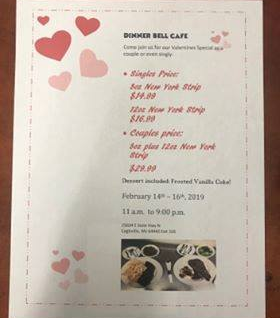 DINNER BELL CAFE
Come join us for our Valentines Special as a
couple or even singly.
• Singles Price:
8oz New York Strip
$14.99
12oz New York Strip
$16.99
• Couples price:
8oz plus 12oz New York
Strip
$29.99
Dessert included: Frosted Vanilla Cake!
February 14th – 16th, 2019
11 a.m. to 9:00 p.m.
State Hwy N
Eagleville, MO